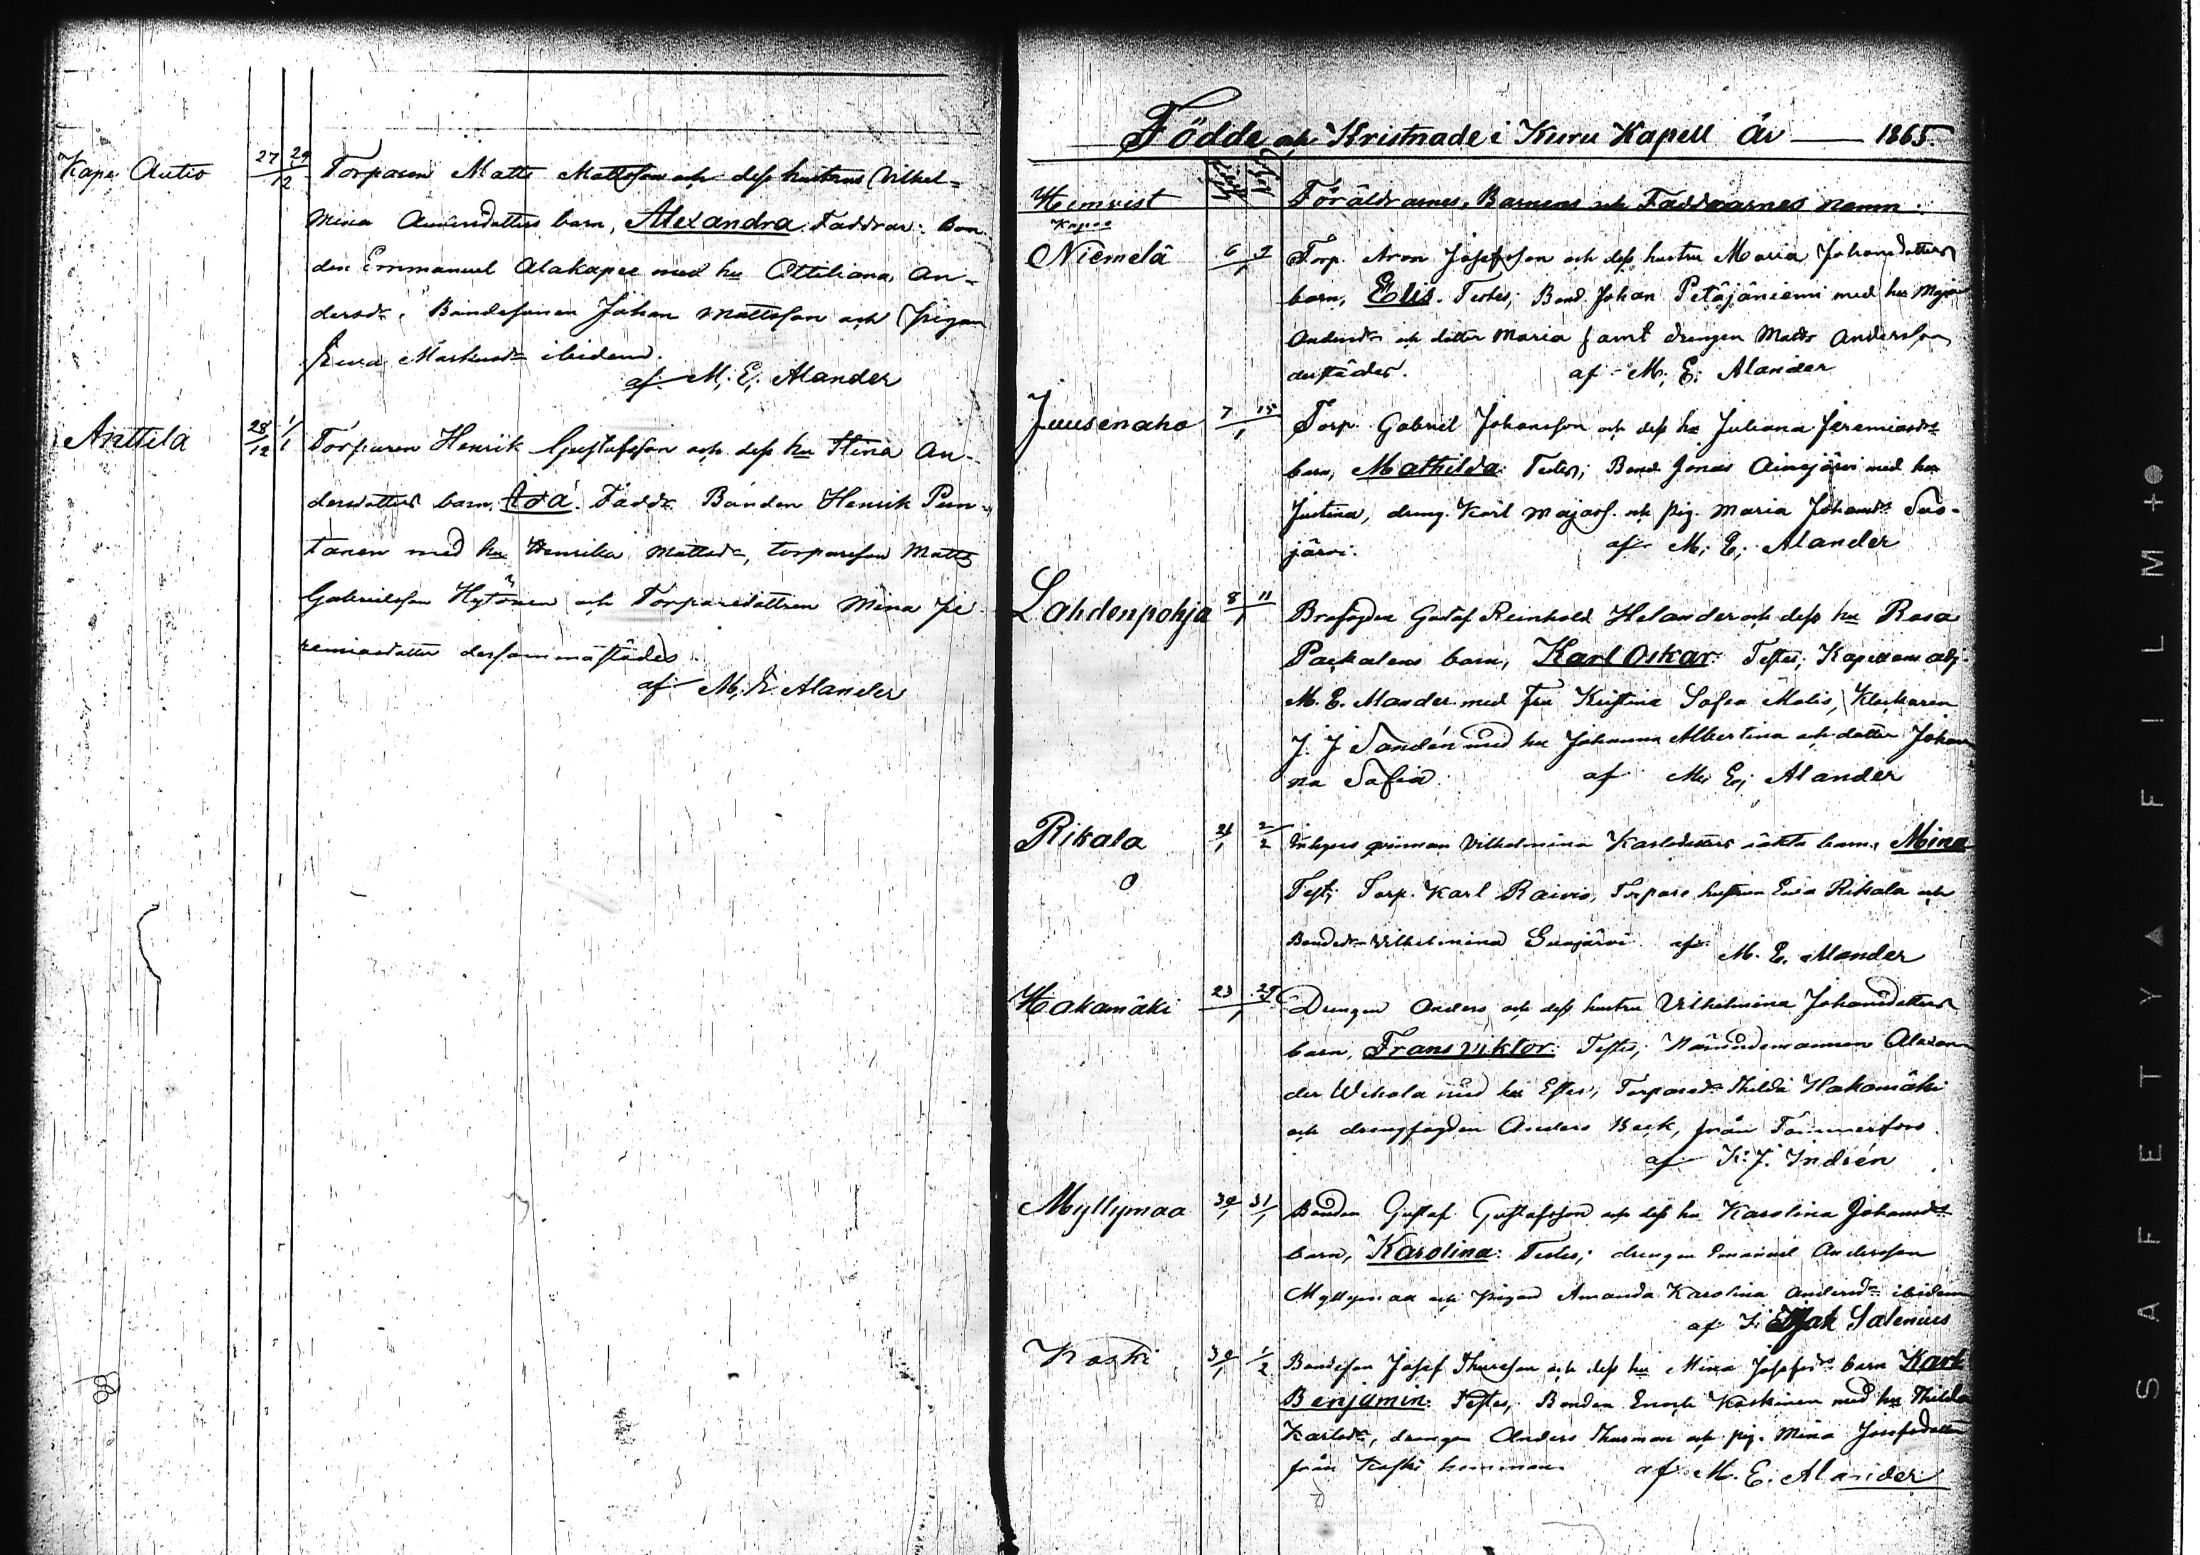 Kapee Autio 27 29/12 Torparen Matts Mattsson och dess hustrus Vilhel-
mina Andersdotters barn, Alexandra. Faddrar: Bon-
den Emmanuel Alakapee med hu Ottiliana An-
dersdr, Bondesonen Johan Mattsson och pigan
Eeva Markusdr ibidem.
af M. E. Alander
Anttila 28/12 1/1 Torparen Henrik Gustafsson och dess hu Stina An-
dersdotters barn, Ida. Faddr. Bonden Henrik Pun-
tanen med hu Henrika Mattsdr, torpareson Matts
Gabrielsson Hytönen och Torparedottren Mina Je-
remiasdotter dersammastädes.
af M. E. Alander
Födde och Kristnade i Kuru Kapell År — 1865.
Hemvist Föräldrarnes, Barnens och Faddrarnes namn:
Kapee
Niemelä 6 9/1 Torp. Aron Josefsson och dess hustru Maria Johansdotters
barn, Elis. Testes; Bond. Johan Petäjäniemi med hu Maja
Andersdr och dotter Maria samt drengen Matts Andersson
derstädes. af M. E. Alander
Juusenaho 7 15/1 Torp. Gabriel Johansson och dess hu Juliana Jeremiasdrs
barn, Mathilda. Testes; Bond. Jonas Ainejärvi med hu
Justina, dreng. Karl Majass. och pig. Maria Johansdr Suo-
järvi. af M. E. Alander
Lahdenpohja 8 11/1 Brofogden Gustaf Reinhold Helander och dess hu Rosa
Packalens barn, Karl Oskar. Testes; Kapellans adj.
M. E. Alander med Fru Kristina Sofia Malis, Klockaren
J. J. Sandén med hu Johanna Albertina och dotter Johan-
na Sofia. af M. E. Alander
Rikala 21/1 2/2 Inhyses qvinnan Vilhelmina Karlsdotters oäkta barn, Mina
O Test; Torp. Karl Raivio, Torpare hustrun Eva Rikala och
Bondedr Vilhelmina Suojärvi. af M. E. Alander
Hakamäki 23 29/1 Drengen Anders och dess hustru Vilhelmina Johansdotters
barn, Frans Viktor. Testes; Nämndemannen Alexan-
der Wekala med hu Ester, Torparedr Thilda Hakamäki
och drengfogden Anders Beck, från Tammerfors.
af K. J. Indrén
Myllymaa 30/1 31/1 Bonden Gustaf Gustafsson och dess hu Karolina Johansdrs
barn, Karolina. Testes; drengen Emanuel Andersson
Myllymaa och pigan Amanda Karolina Andersdr ibidem
af Salenius
Koski 30/1 1/2 Bondeson Josef Thuresson och dess hu Mina Josefsdrs barn Karl
Benjamin. Testes; Bonden Enok Koskinen med hu Thilda
Karlsdr, drengen Anders Thurman och pig. Mina Josefsdotter
från Koski hemman. af M. E. Alander
98
SAFETY FILM